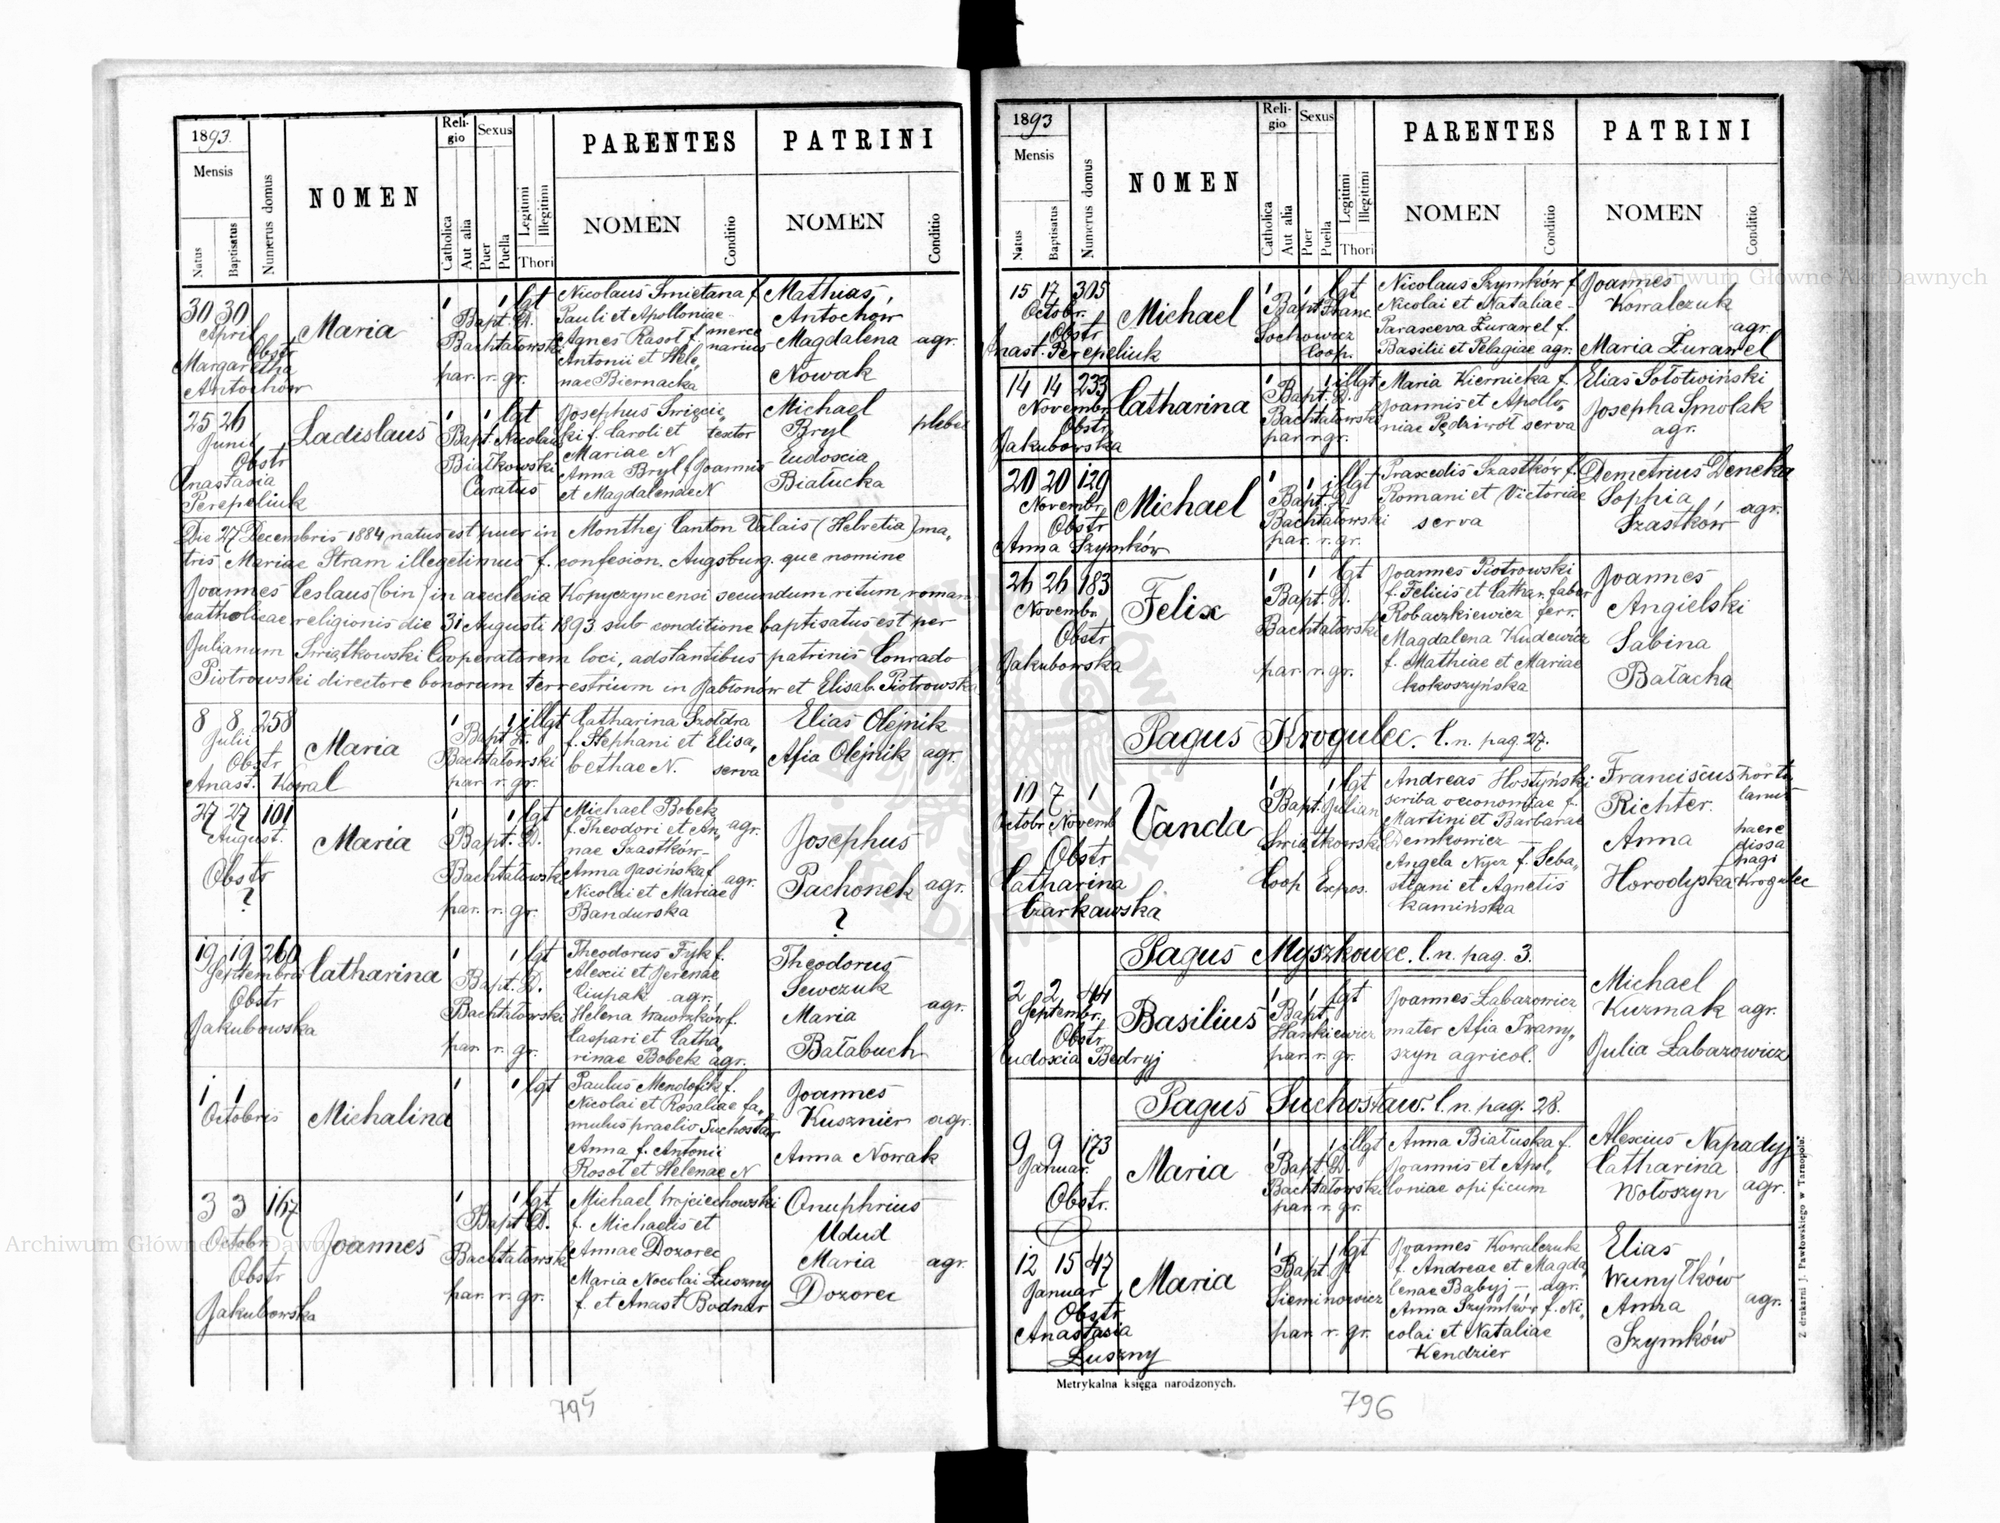 1893.
Mensis
Natus
Baptisatus
Numerus domus
NOMEN
Reli-
gio
Catholica
Aut alia
Sexus
Puer
Puella
Legitimi
Illegitimi
Thori
PARENTES
NOMEN
Conditio
PATRINI
NOMEN
Conditio
30 30
April
Obstr
Margaretha
Antochów
Maria
1 1 lgt
Bapt. D.
Bachtałowski
par. r. gr.
Nicolaus Smietana f.
Pauli et Apolloniae
Agnes Rasoł f.
Antonii et Hele
nae Biernacka
merce
narius
Mathias
Antochów
Magdalena agr.
Nowak
25 26
Junii
Obstr
Anastasia
Perepeliuk
Ladislaus
1 1 lgt
Bapt. Nicolaus
Białkowski
Curatus
Josephus Swięcic
ki f. Caroli et textor
Mariae N
Anna Bryl f Joannis
et Magdalenae N
Michael
Bryl plebei
Eudoxia
Białucka
Die 27 Decembris 1884 natus est puer in Monthej Canton Valais (Helvetia) ma„
tris Mariae Stram illegetimus f. confesion. Augsburg. que nomine
Joannes Ceslaus (bin) in aecclesia Kopyczyncensi secundum ritum roman
catholicae religionis die 31 Augusti 1893 sub conditione baptisatus est per
Julianum Swiątkowski Cooperatorem loci, adstantibus patrinis Conrado
Piotrowski directore bonorum terrestrium in Jabłonów et Elisab. Piotrowska
8 8 258
Julii
Obstr
Anast. Kowal
Maria
1 1 illgt
Bapt. D.
Bachtałowski
par. r. gr.
Catharina Szołdra
f. Stephani et Elisa„
bethae N. serva
Elias Olejnik
Afia Olejnik agr.
27 27 101
August.
Obstr
?
Maria
1 1 lgt
Bapt. D.
Bachtałowski
par. r. gr.
Michael Bobek
f. Theodori et An„ agr.
nae Szastków
Anna Jasińska f. agr.
Nicolai et Mariae
Bandurska
Josephus
Pachonek agr.
?
19 19 260
Septembris
Obstr
Jakubowska
Catharina
1 1 lgt
Bapt. D.
Bachtałowski
par. r. gr.
Theodorus Fyk f.
Alexii et Jerenae
Ciupak agr.
Helena Wawrzków f.
Caspari et Catha„
rinae Bobek agr.
Theodorus
Sewczuk
Maria agr.
Bałabuch
1 1
Octobris
Michalina
1 1 lgt
Paulus Mendofik f.
Nicolai et Rosaliae fa„
mulus praelio Suchostaw
Anna f. Antonii
Rosoł et Helenae N
Joannes
Kusznier agr.
Anna Nowak
3 3 167
Octobr
Obstr
Jakubowska
Joannes
1 1 lgt
Bapt D.
Bachtałowski
par. r. gr.
Michael Wojciechowski
f. Michaelis et
Annae Dozorec
Maria Nocolai Łuszny
f. et Anast Bodnar
Onuphrius
Udud
Maria agr.
Dozorec
795
1893
Mensis
Natus
Baptisatus
Numerus domus
NOMEN
Reli-
gio
Catholica
Aut alia
Sexus
Puer
Puella
Legitimi
Illegitimi
Thori
PARENTES
NOMEN
Conditio
PATRINI
NOMEN
Conditio
15 17 305
Octobr.
Obstr
Anast. Perepeliuk
Michael
1 1 lgt
Bapt. Franc.
Sochowicz
Coop.
Nicolaus Szymków f.
Nicolai et Nataliae
Paraxeva Żurawel f.
Basilii et Pelagiae agr.
Joannes
Kowalczuk
agr.
Maria Żurawel
14 14 233
Novembr.
Obstr
Jakubowska
Catharina
1 1 illgt
Bapt. D.
Bachtałowski
par. r. gr.
Maria Kiernicka f.
Joannis et Apollo„
niae Pędziwół serva
Elias Sołotwiński
Josepha Smolak
agr.
20 20 129
Novembr.
Obstr
Anna Szymków
Michael
1 1 illgt
Bapt. D.
Bachtałowski
par. r. gr.
Praxedis Szastków f.
Romani et Victoriae
serva
Demetrius Deneka
Sophia
agr.
Szastków
26 26 183
Novembr.
Obstr
Jakubowska
Felix
1 1 lgt
Bapt. D.
Bachtałowski
par. r. gr.
Joannes Piotrowski
f. Felicis et Cathar. faber
Robaczkiewicz ferr.
Magdalena Kudewicz
f. Mathiae et Mariae
Kokoszyńska
Joannes
Angielski
Sabina
Bałacka
Pagus Krogulec. l. n. pag. 27.
10 7 1
Octobr. Novemb
Obstr
Catharina
Czarkawska
Vanda
1 1 lgt
Bapt. Julian
Swiątkowski
Coop Expos.
Andreas Hostyński
scriba oeconomiae f.
Martini et Barbarae
Demkowicz
Angela Nycz f. Seba„
stiani et Agnetis
Kamińska
Franciscus
Richter.
Anna haere
dissa
pagi
Horodyska Krogulec
Pagus Myszkowce. l. n. pag. 3.
2 2 44
Septembr.
Obstr.
Eudoxia Bedryj
Basilius
1 1 lgt
Bapt.
Hankiewicz
par. r. gr.
Joannes Łabazowicz
mater Afia Iwany„
szyn agricol.
Michael
Kuzmak agr.
Julia Łabazowicz
Pagus Suchostaw. l. n. pag. 28.
9 9 173
Januar.
Obstr.
Maria
1 1 illgt
Bapt. D.
Bachtałowski
par. r. gr.
Anna Białuska f.
Joannis et Apol„
loniae opificum
Alexius Napadyj
Catharina
Wołoszyn agr.
12 15 47
Januar
Obstr
Anastasia
Łuszny
Maria
1 1 lgt
Bapt
Sieminowicz
par. r. gr.
Joannes Kowalczuk
f. Andreae et Magda„
lenae Babyj agr.
Anna Szymków f. Ni„
colai et Nataliae
Kendzier
Elias
Wunytków
Anna agr.
Szymków
Metrykalna księga narodzonych.
Z drukarni J. Pawłowskiego w Tarnopolu.
796
Archiwum Główne Akt Dawnych
Archiwum Główne Akt Dawnych